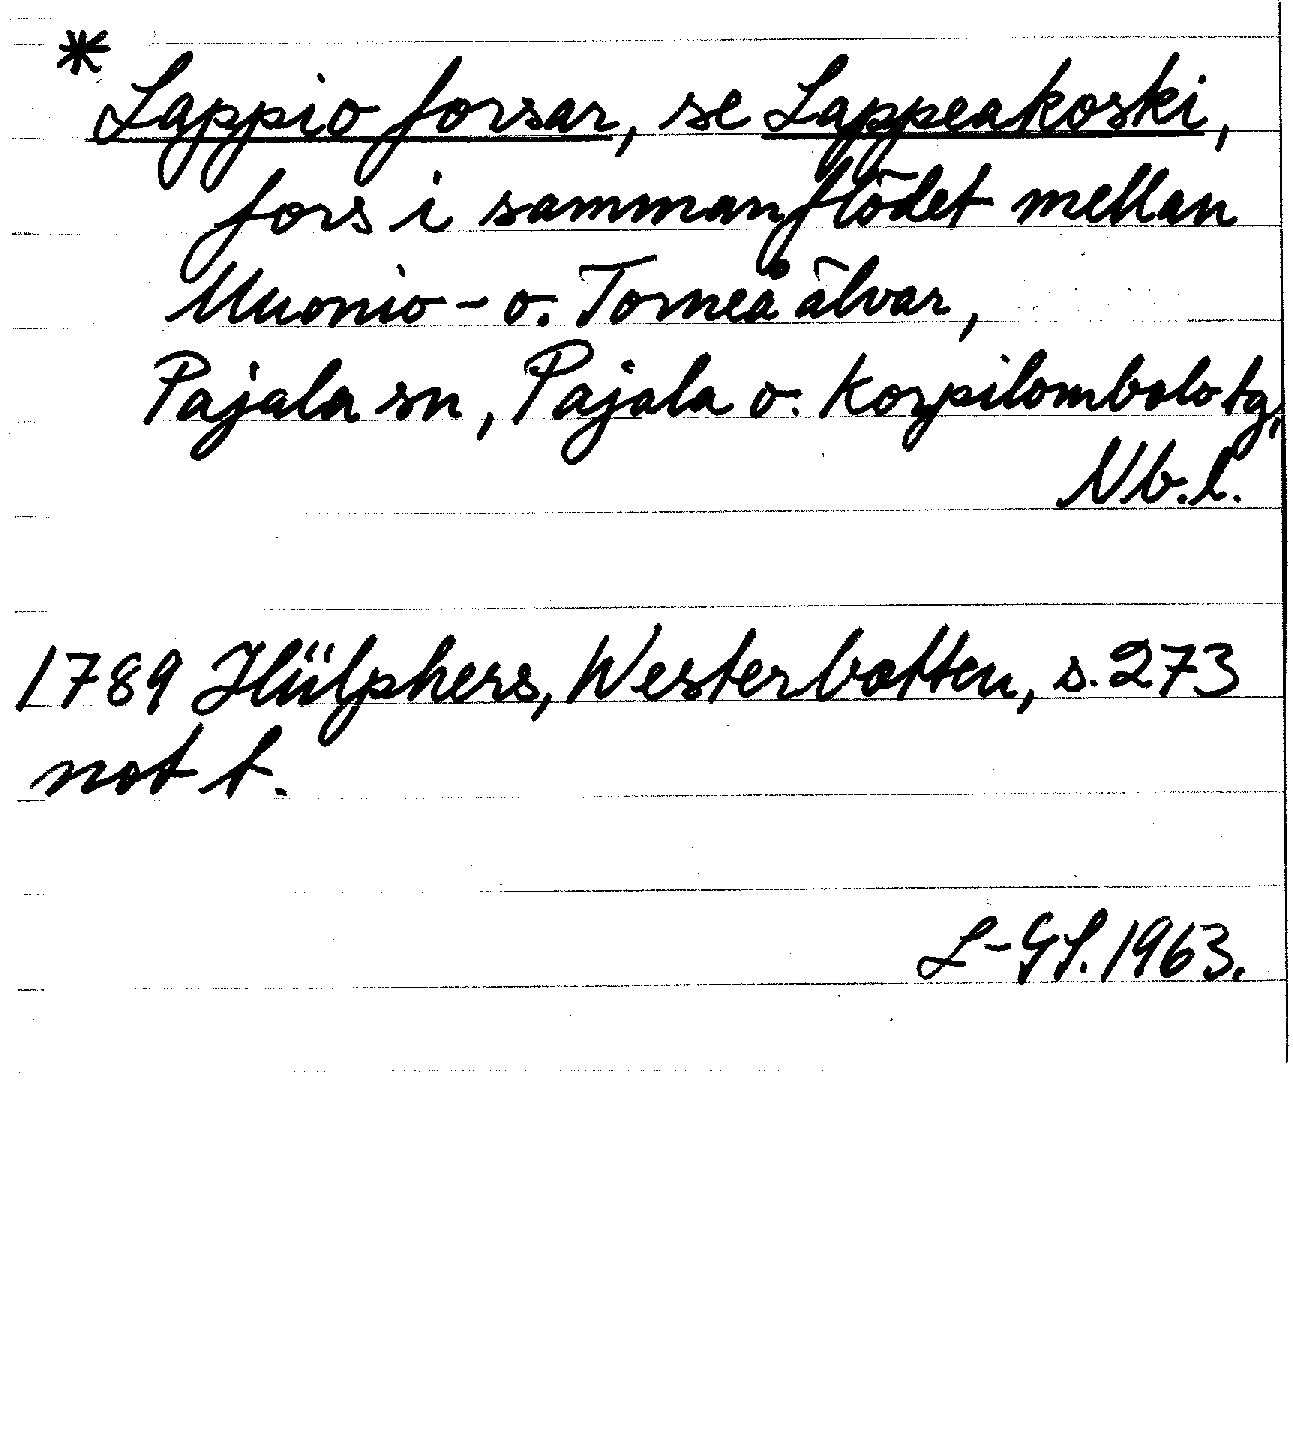 * Lappio forsar, se Lappeakoski,
fors i sammanflödet mellan
Muonio- o. Torneå älvar,
Pajala sn, Pajala o. Korpilombolo tg,
Nb.l.
1789 Hülphers, Westerbotten, s. 273
not t.
L-GS. 1963.